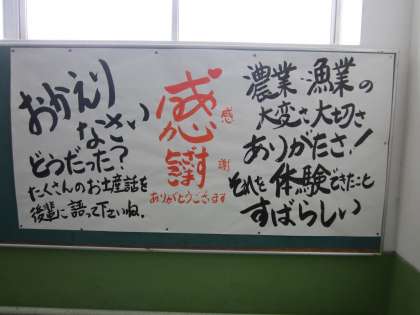 おかえり
なさい
どうだった？
たくさんのお土産話を
後輩に語って下さいね。
感謝
感
謝
ありがとうございます
農業・漁業の
大変さ、大切さ
ありがたさ！
それを体験できたこと
すばらしい